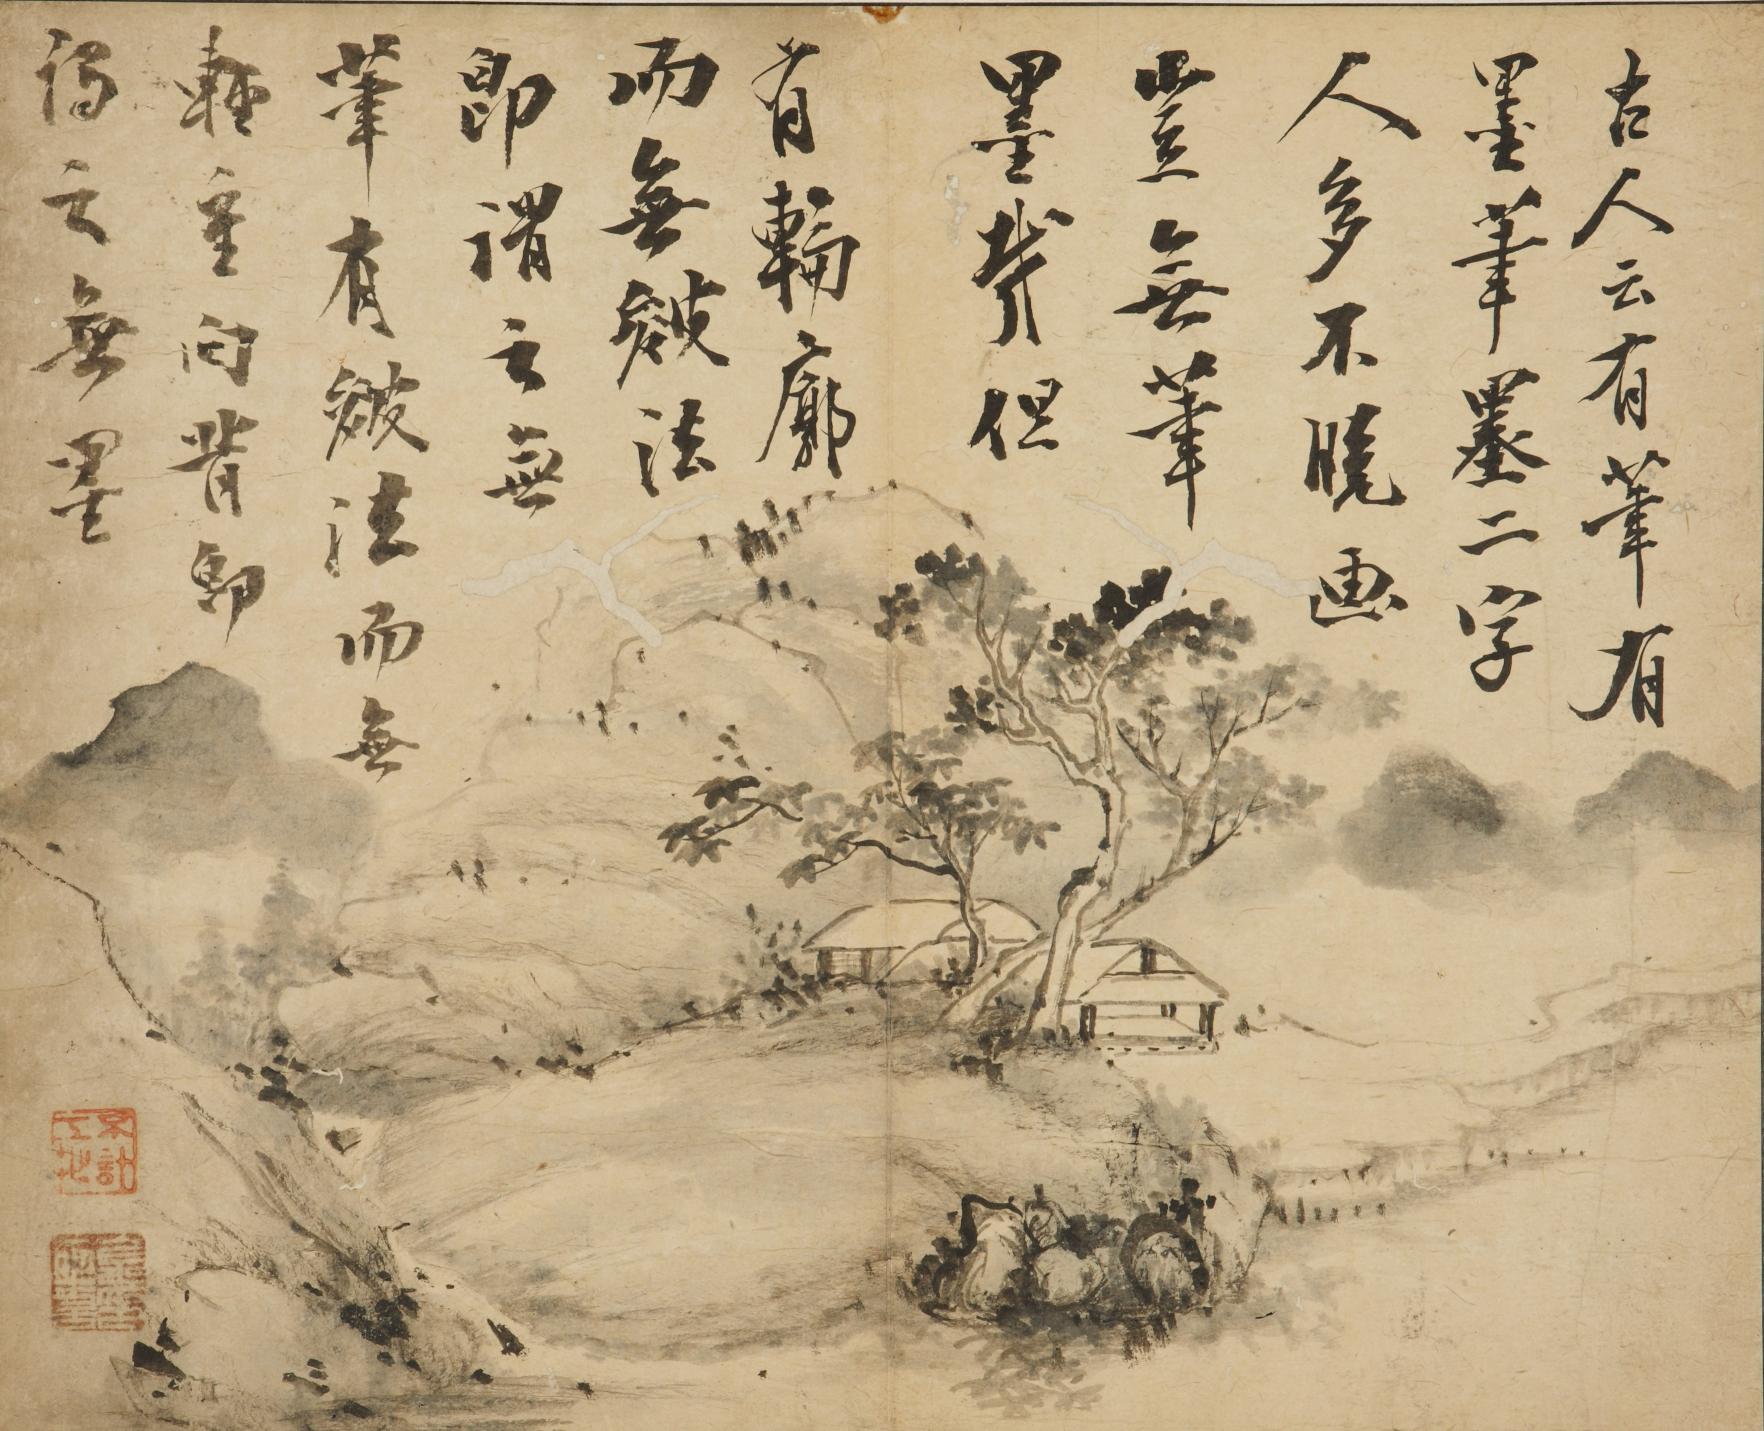 古人云有筆有
墨筆墨二字
人多不曉画
豈無筆
墨哉但
有輪廓
而無皴法
即謂之無
筆有皴法而無
輕重向背即
謂之無墨
不計工拙